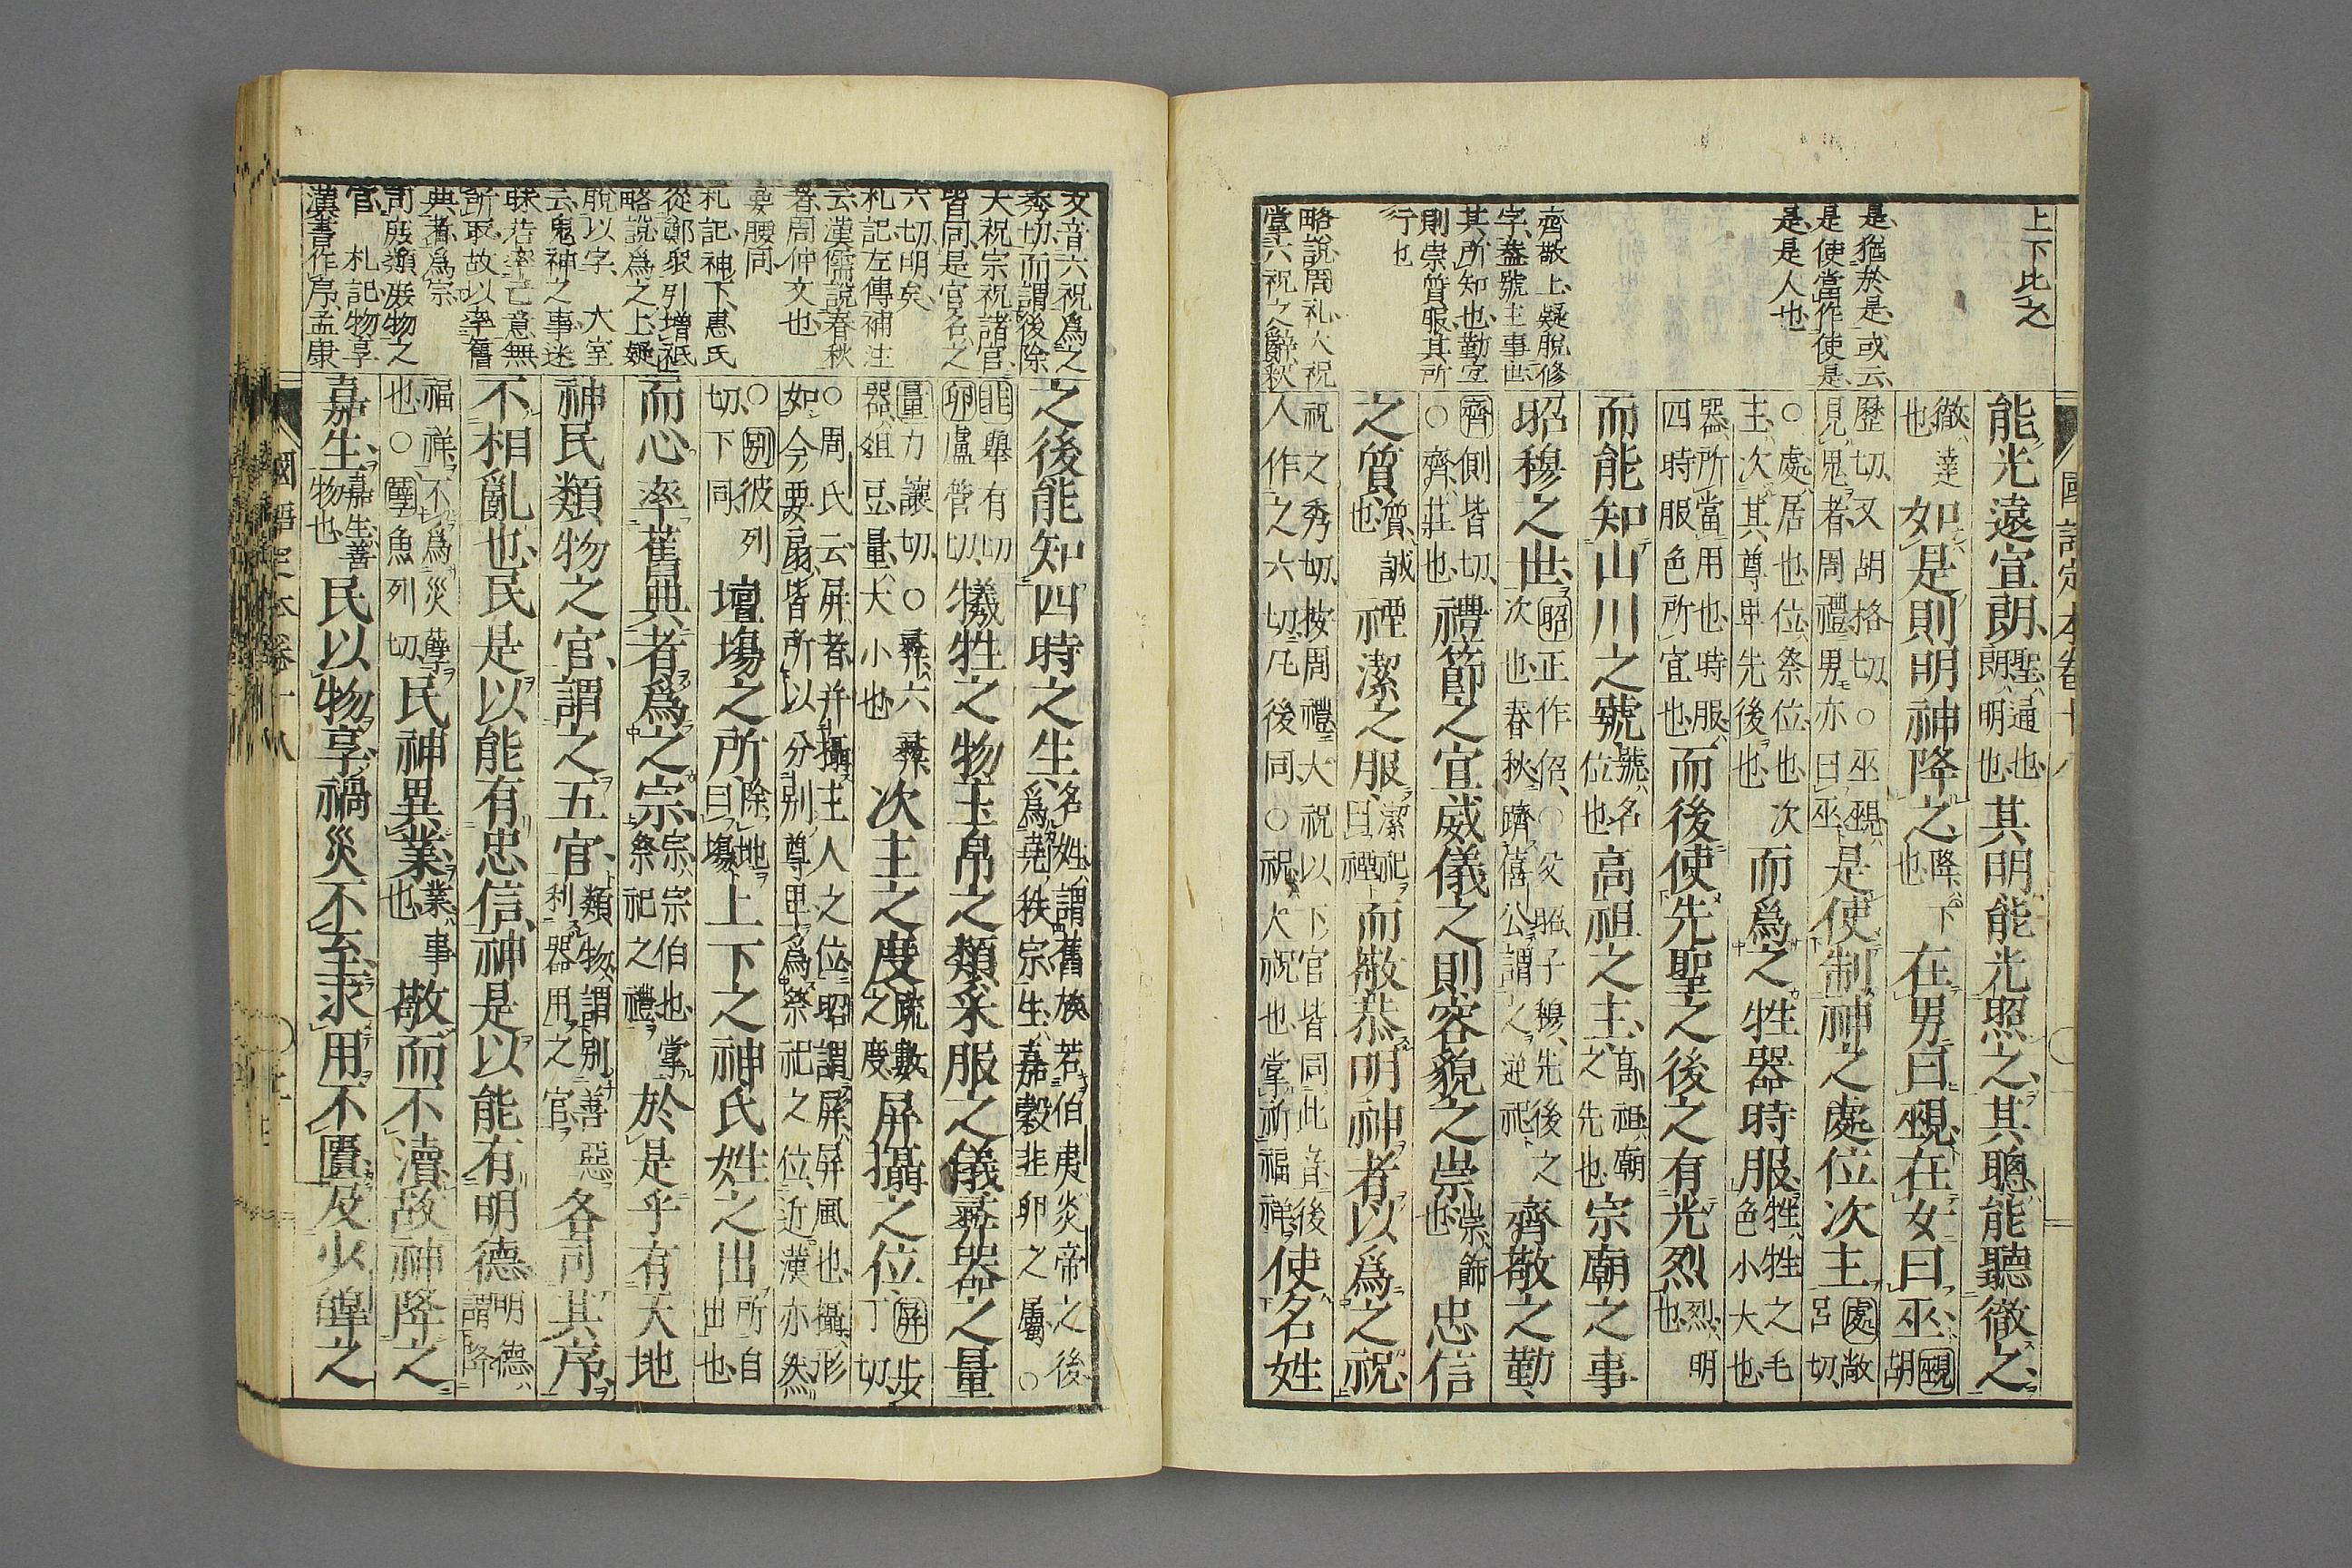 上下比之
是猶於是或云
是使當作使是
是是人也
齊敬上疑脫修
字蓋號主事世
其所知也勤宜
則崇質服其所
行也
略說周礼大祝
掌六祝之辭秋
國語定本卷十八
能光遠宣朗聖通也朗明也其明能光照之其聰能聽徹之
徹達也如是則明神降之降下也在男曰覡在女曰巫覡胡
歷切又胡格切○巫覡見鬼者周禮男亦曰巫是使制神之處位次主處敞呂切
○處居也位祭位也次主次其尊卑先後也而爲之牲器時服牲牲之毛色小大也
器所當用也時服四時服色所宜也而後使先聖之後之有光烈烈明也
而能知山川之號號名位也高祖之主高祖廟之先也宗廟之事
昭穆之世昭正作佋○父昭子穆先後之次也春秋躋僖公謂之逆祀齊敬之勤
齊側皆切○齊莊也禮節之宜威儀之則容貌之崇崇飾也忠信
之質質誠也禋潔之服潔祀曰禋而敬恭明神者以爲之祝
祝之秀切按周禮大祝以下官皆同此音後人作之六切凡後同○祝大祝也掌祈福祥使名姓
又音六祝爲之
秀切而謂後除
大祝宗祝諸官
皆同是官名之
六切明矣
札記左傳補注
云漢儒說春秋
者周仲文也
要腰同
札記神下惠氏
從鄭眾列增祇
略說爲之上疑
脫以字 大室
云鬼神之事迷
昧若率己意無
所取故以率舊
典者爲宗
物之
官 札記物享
漢書作序孟康
之後能知四時之生名姓謂舊族若伯夷炎帝之後爲堯秩宗生嘉穀韭卵之屬○
韭舉有切卵盧管切犧牲之物玉帛之類采服之儀彝器之量
量力讓切○彝六彝器俎豆量大小也次主之度疏數之度屏攝之位屏步丁切
○周氏云屏者幷攝主人之位昭謂屏屏風也攝形如今要扇皆所以分別尊卑爲祭祀之位近漢亦然
○別彼列切下同壇場之所除地曰場上下之神氏姓之出所自出也
而心率舊典者爲之宗宗宗伯也掌祭祀之禮於是乎有天地
神民類物之官謂之五官類物謂別善惡利器用之官各司其序
不相亂也民是以能有忠信神是以能有明德明德謂降
福祥不爲災孽也○孽魚列切民神異業業事也敬而不瀆故神降之
嘉生嘉生善物也民以物享禍災不至求用不匱及少皥之
國語定本卷十八